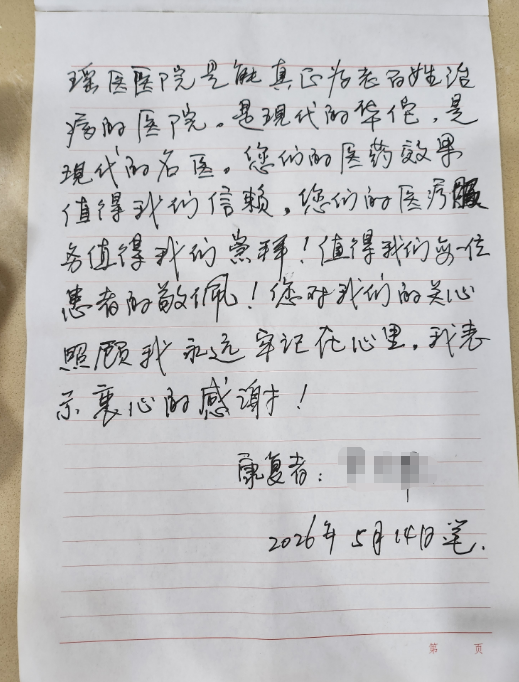 瑶医医院是能真正为老百姓治
病的医院。是现代的华佗，是
现代的名医。您们的医药效果
值得我们信赖，您们的医疗服
务值得我们崇拜！值得我们每一位
患者的敬佩！您对我们的关心
照顾我永远牢记在心里。我表
示衷心的感谢！
康复者：
2026年5月14日笔.
第 页